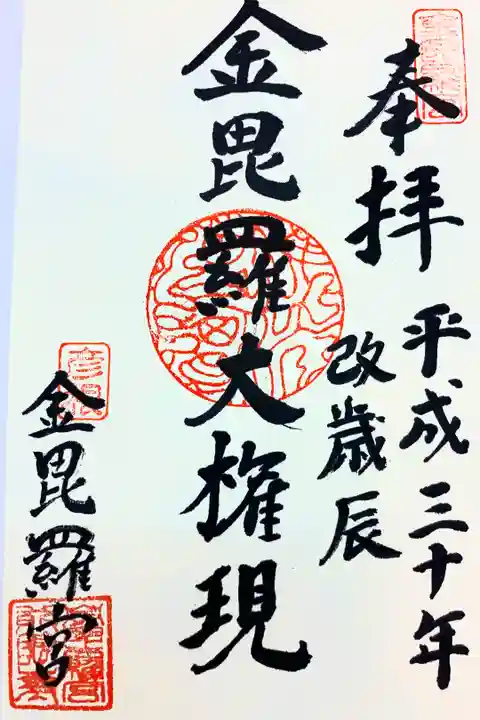 奉拝
平成三十年
改歳辰
金毘羅大権現
金毘羅宮